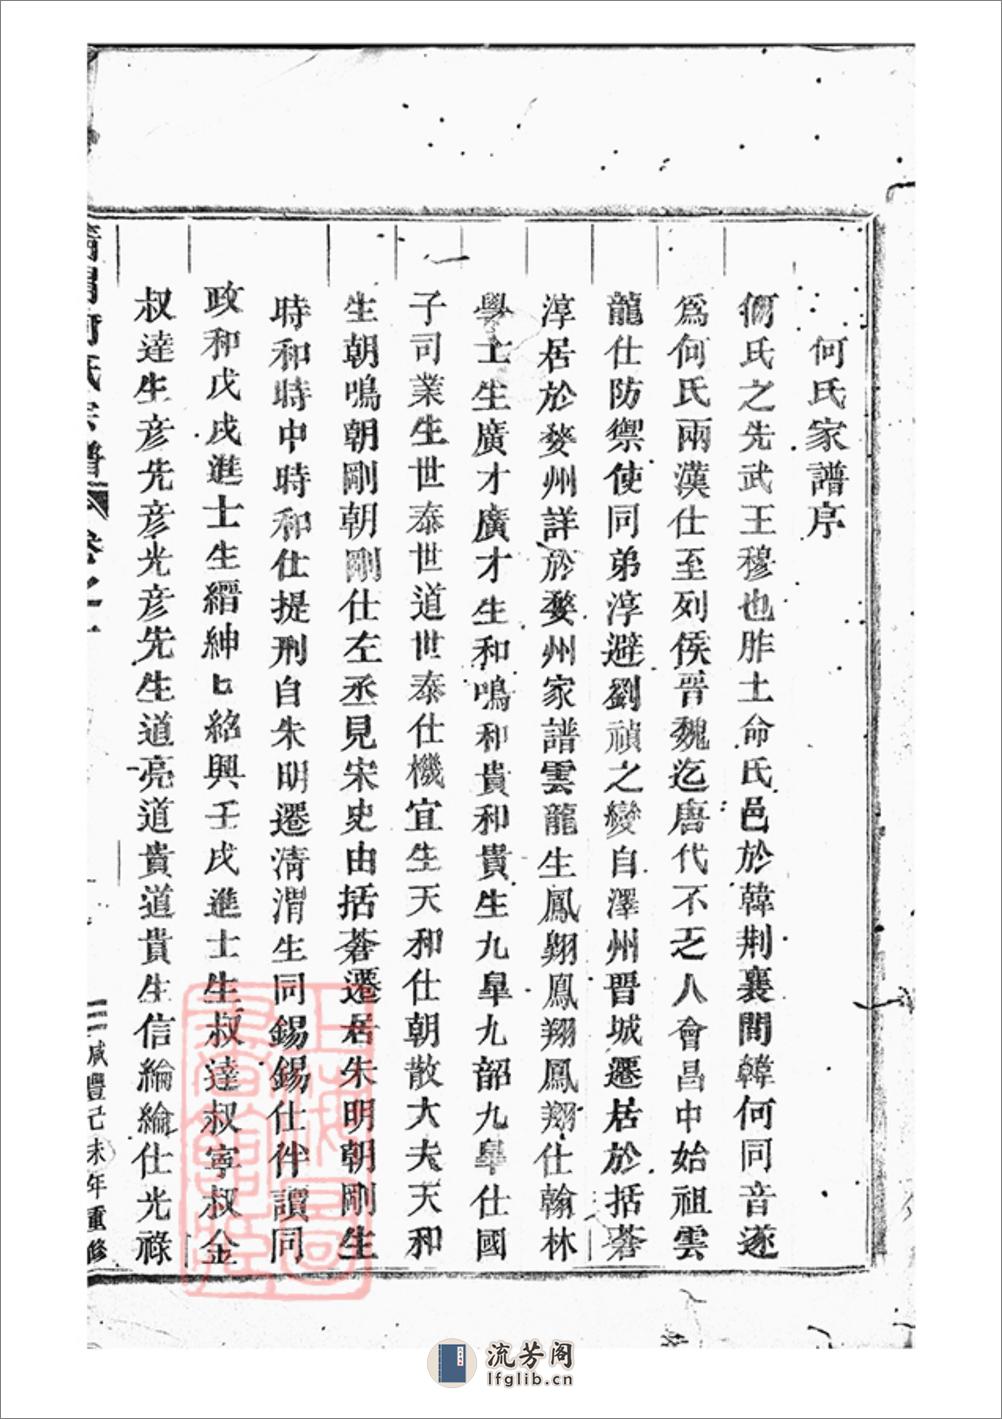 何氏家譜序
何氏之先武王穆也胙土命氏邑於韓荆襄間韓何同音遂
爲何氏兩漢仕至列侯晉魏迄唐代不乏人會昌中始祖雲
龍仕防禦使同弟淳避劉禎之變自澤州晋城遷居於括蒼
淳居於婺州詳於婺州家譜雲龍生鳳翔鳳翔鳳翔仕翰林
學士生廣才廣才生和鳴和貴和貴生九皐九韶九皐仕國
子司業生世泰世道世泰仕機宜生天和仕朝散大夫天和
生朝鳴朝剛朝剛仕左丞見宋史由括蒼遷居朱明朝剛生
時和時中時和仕提刑自朱明遷淸渭生同錫錫仕伴讀同
政和戊戌進士生縉紳匕紹興壬戌進士生叔達叔寜叔金
叔達生彦先彦光彦先生道亮道貴道貴生信綸綸仕光祿
淸渭何氏宗譜 卷之一 咸豐己未年重修
上海圖書館藏
流芳阁
lfglib.cn